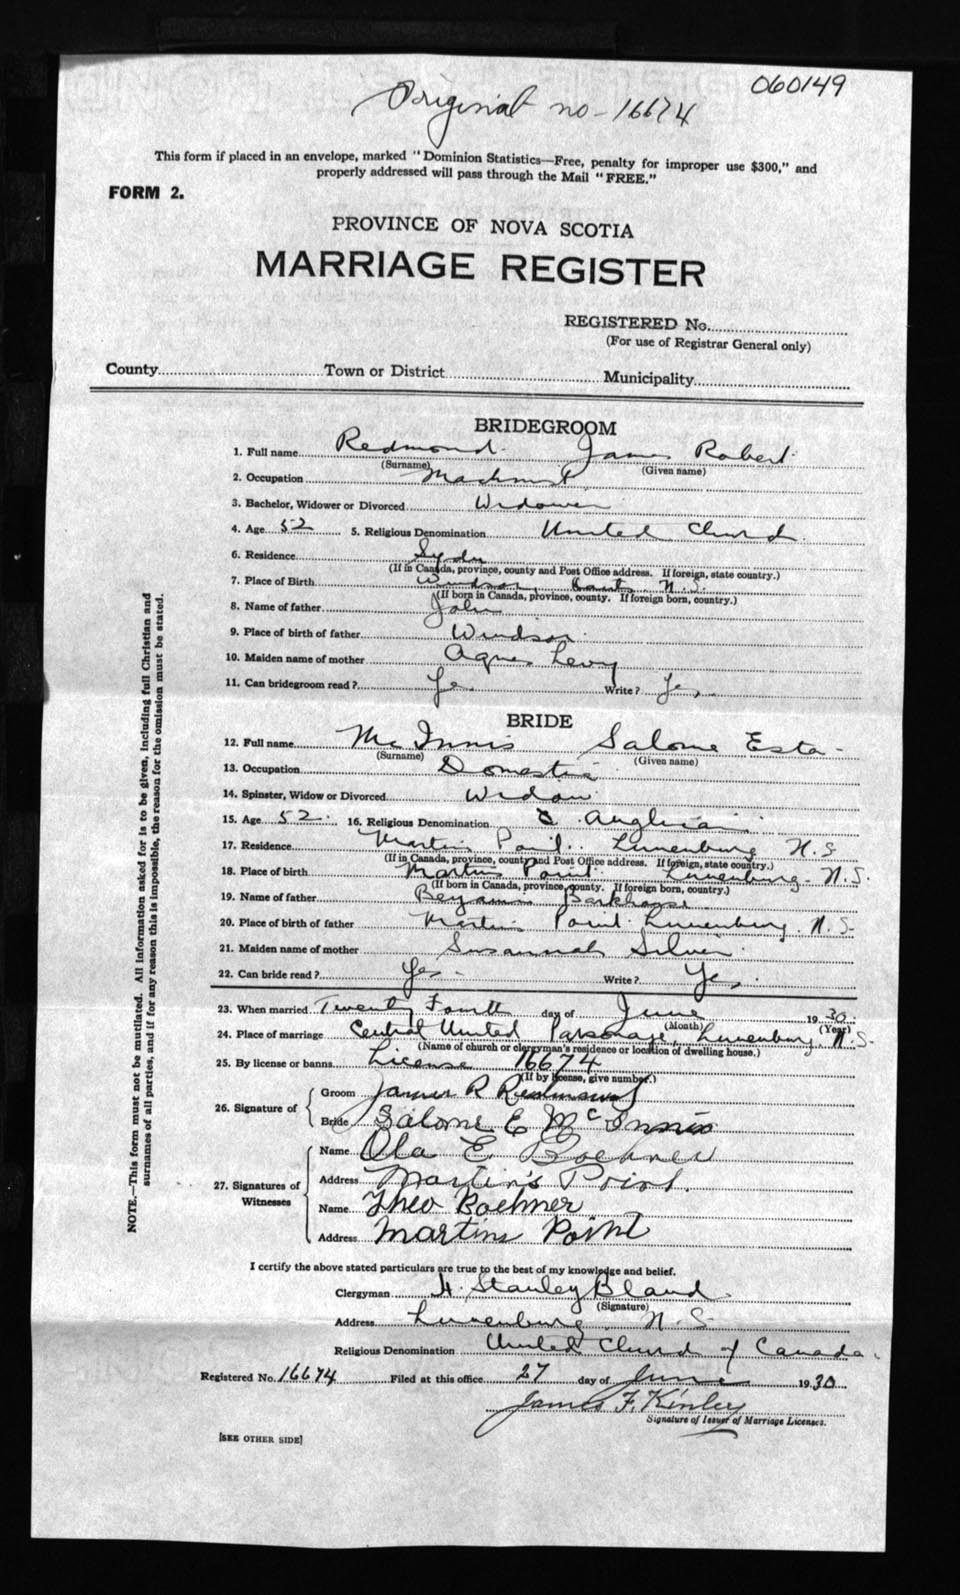 060149
Original no - 16674
This form if placed in an envelope, marked "Dominion Statistics—Free, penalty for improper use $300," and
properly addressed will pass through the Mail "FREE."
FORM 2.
PROVINCE OF NOVA SCOTIA
MARRIAGE REGISTER
REGISTERED No.
(For use of Registrar General only)
County Town or District Municipality
BRIDEGROOM
1. Full name Redmond James Robert
(Surname) (Given name)
2. Occupation Machinist
3. Bachelor, Widower or Divorced Widower
4. Age 52 5. Religious Denomination United Church
6. Residence
(If in Canada, province, county and Post Office address. If foreign, state country.)
7. Place of Birth Windsor Hants N.S.
(If born in Canada, province, county. If foreign born, country.)
8. Name of father John
9. Place of birth of father Windsor
10. Maiden name of mother Agnes Levy
11. Can bridegroom read? Yes Write? Yes
BRIDE
12. Full name McInnis Salome Esta
(Surname) (Given name)
13. Occupation Domestic
14. Spinster, Widow or Divorced Widow
15. Age 52 16. Religious Denomination Anglican
17. Residence Martins Point Lunenburg N.S
(If in Canada, province, county and Post Office address. If foreign, state country.)
18. Place of birth Martins Point Lunenburg N.S.
(If born in Canada, province, county. If foreign born, country.)
19. Name of father Benjamin Barkhouse
20. Place of birth of father Martins Point Lunenburg N.S
21. Maiden name of mother Susannah Silver
22. Can bride read? Yes Write? Yes
23. When married Twenty Fourth day of June 1930
(Month) (Year)
24. Place of marriage Central United Parsonage, Lunenburg N.S
(Name of church or clergyman's residence or location of dwelling house.)
25. By license or banns License 16674
(If by license, give number.)
26. Signature of
Groom James R Redmond
Bride Salome E McInnis
27. Signatures of Witnesses
Name Ola E Boehner
Address Martin's Point.
Name Theo Boehner
Address Martins Point
I certify the above stated particulars are true to the best of my knowledge and belief.
Clergyman H. Stanley Bland
(Signature)
Address Lunenburg N.S
Religious Denomination United Church of Canada.
Registered No. 16674 Filed at this office 27 day of June 1930
James F. Kinley
Signature of Issuer of Marriage Licenses.
[SEE OTHER SIDE]
NOTE.—This form must not be mutilated. All information asked for is to be given, including full Christian and
surnames of all parties, and if for any reason this is impossible, the reason for the omission must be stated.